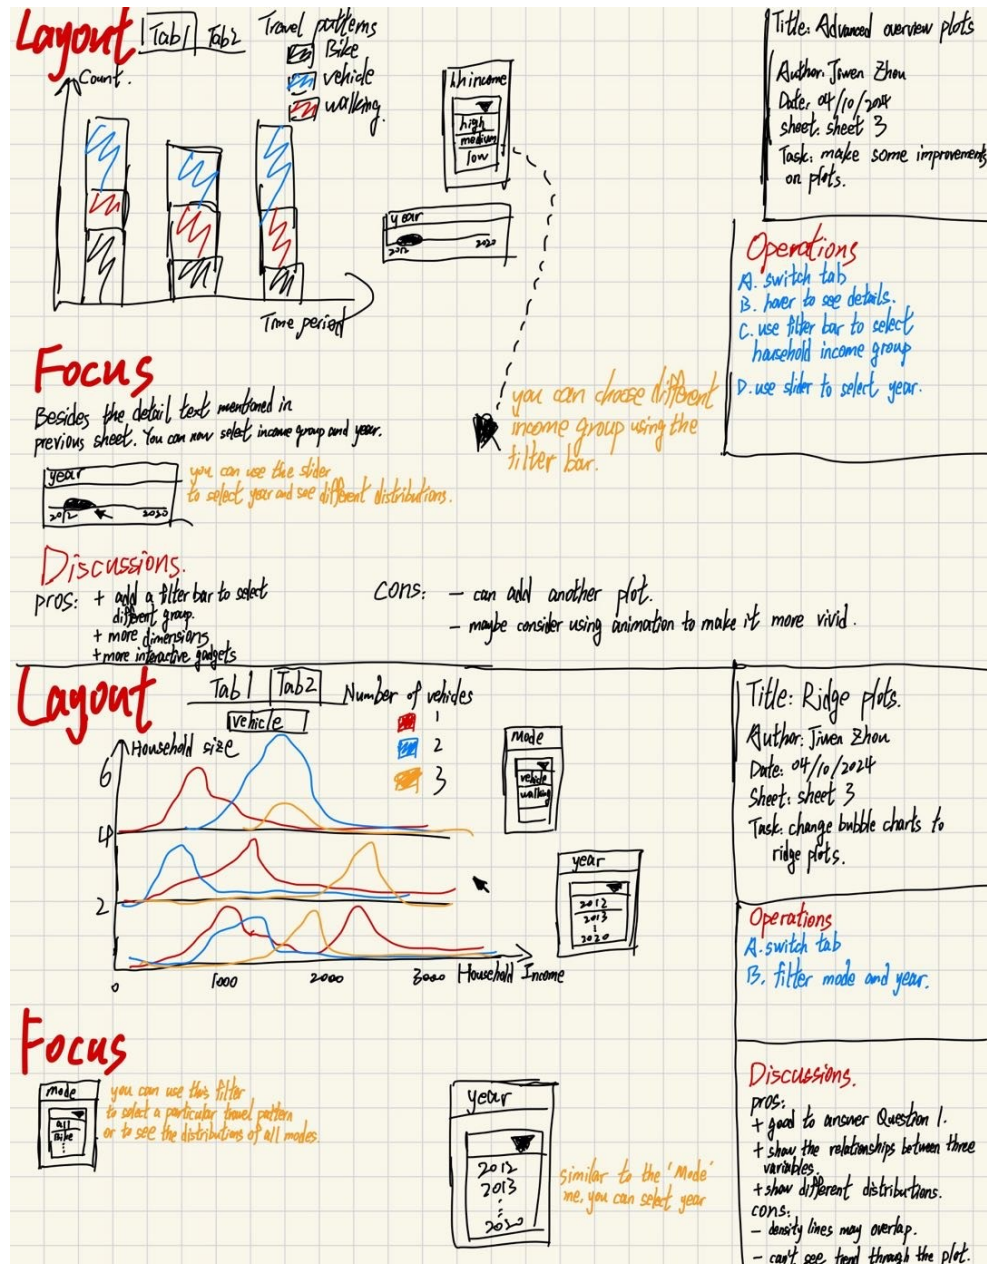 Layout
Tab1 Tab2
Travel patterns
Bike
vehicle
walking.
Count.
Time period
hh income
high
medium
low
year
2012 2020
Title: Advanced overview plots
Author: Jiwen Zhou
Date: 04/10/2024
sheet: sheet 3
Task: make some improvements
on plots.
Operations
A. switch tab
B. hover to see details.
C. use filter bar to select
household income group
D. use slider to select year.
Focus
Besides the detail text mentioned in
previous sheet. You can now select income group and year.
year
2012 2020
you can use the slider
to select year and see different distributions.
you can choose different
income group using the
filter bar.
Discussions.
pros: + add a filter bar to select
different group.
+ more dimensions
+ more interactive gadgets
cons: - can add another plot.
- maybe consider using animation to make it more vivid.
Layout
Tab1 Tab2
vehicle
Number of vehicles
1
2
3
Household size
6
4
2
0 1000 2000 3000 Household Income
mode
vehicle
walking
year
2012
2013
2020
Title: Ridge plots.
Author: Jiwen Zhou
Date: 04/10/2024
Sheet: sheet 3
Task: change bubble charts to
ridge plots.
Operations
A. switch tab
B. filter mode and year.
Focus
mode
all
Bike
you can use this filter
to select a particular travel pattern
or to see the distributions of all modes
year
2012
2013
2020
similar to the 'Mode'
me, you can select year
Discussions.
pros:
+ good to answer Question 1.
+ show the relationships between three
variables.
+ show different distributions.
cons:
- density lines may overlap.
- can't see trend through the plot.